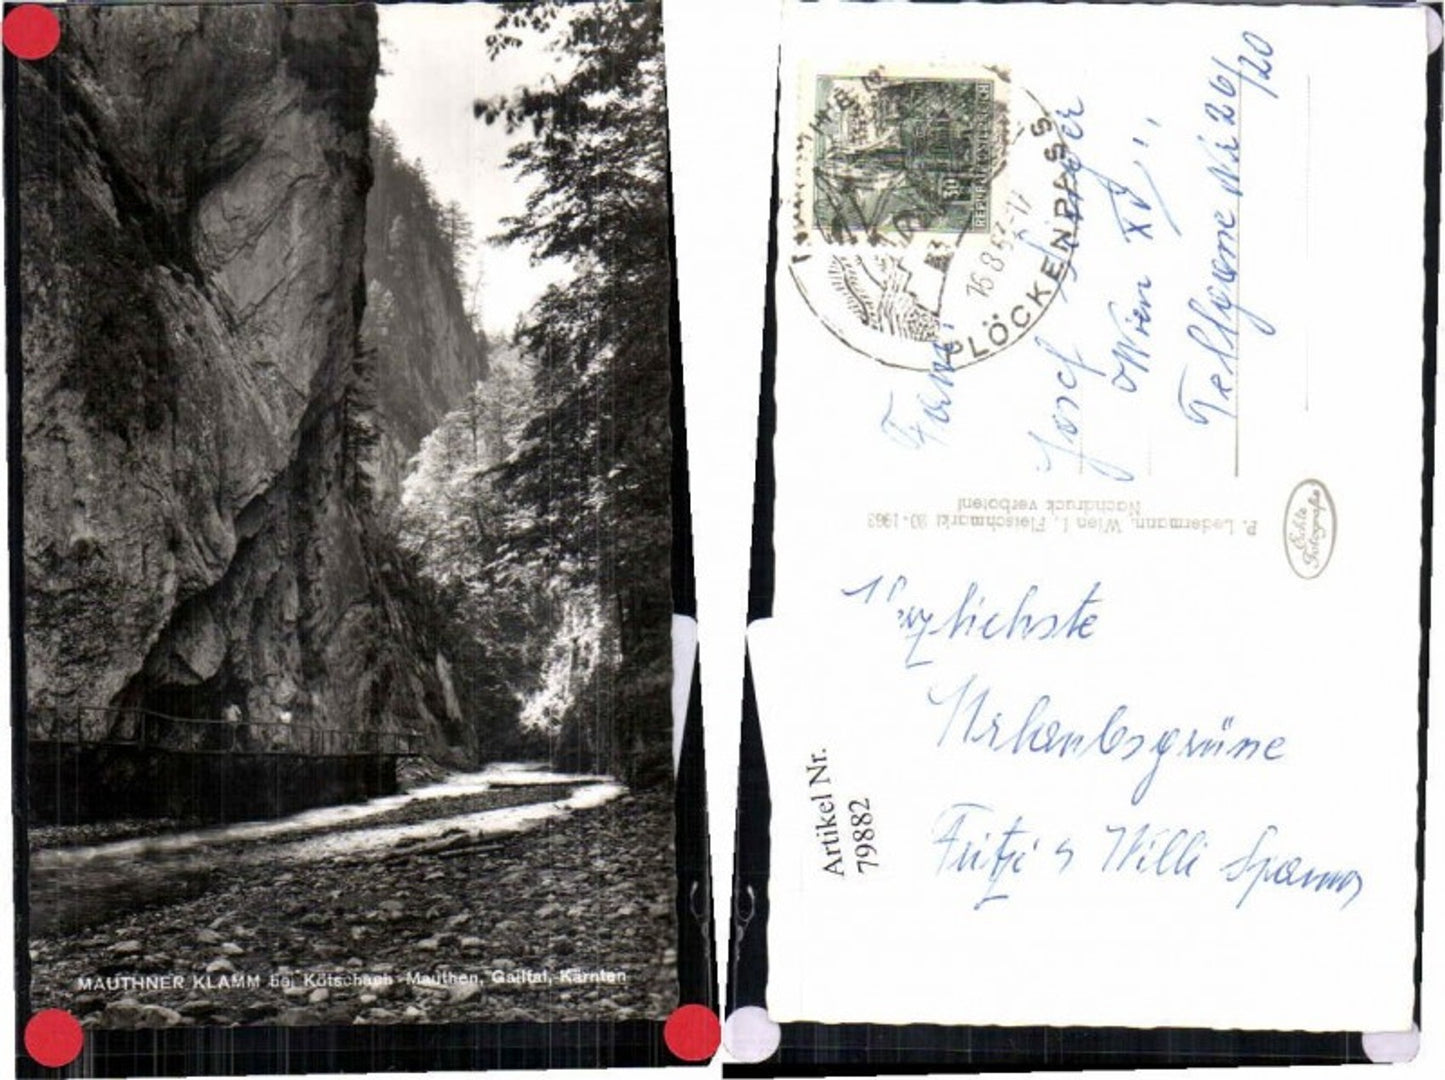 MAUTHNER KLAMM bei Kötschach-Mauthen, Gailtal, Kärnten
REPUBLIK ÖSTERREICH
PLÖCKENPASS
Fam.
Josef
Wien XV,
Nr 26/20
P. Ledermann, Wien I, Fleischmarkt 20-1963
Nachdruck verboten!
Echte
Fotografie
Herzlichste
Urlaubsgrüße
Fritzi & Willi
Artikel Nr.
79882